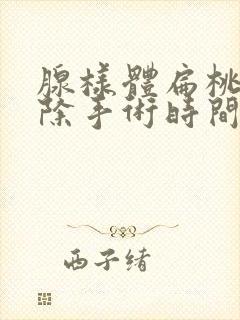 腺樣體扁桃
除手術時間
西子緒